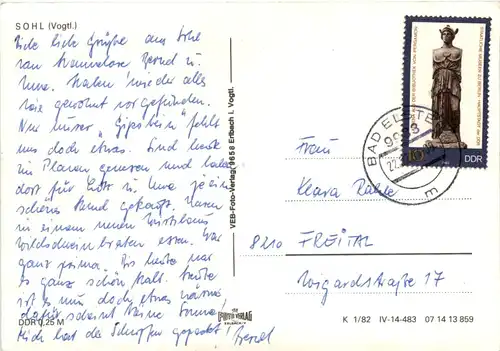 SOHL (Vogtl.)
liebe Grüße aus Sohl
von Hannelore, Bernd u.
Haben wieder alles
wie gewohnt vorgefunden.
Nur unser "Gipsbein" fehlt
uns doch etwas. Sind heute
in Plauen gewesen und haben
dort für u.
schönes gekauft. Waren
in einem neuen Wirtshaus
Wildschweinbraten essen. War
ganz prima. Bis heute war
es ganz schön kalt. Heute
ist es nun doch etwas wärmer
dafür scheint keine Sonne!
hat der Schnupfen gepackt
Bernd
DDR 0,25 M
VEB-Foto-Verlag, 9656 Erlbach i. Vogtl.
FOTO VERLAG
ERLBACH
AUS DER BIBLIOTHEK VON PERGAMON
STAATLICHE MUSEEN ZU BERLIN HAUPTSTADT der DDR
DDR
BAD ELSTER
Frau
Klara
8210 FREITAL
Wigardstraße 17
K 1/82 IV-14-483 07 14 13 859